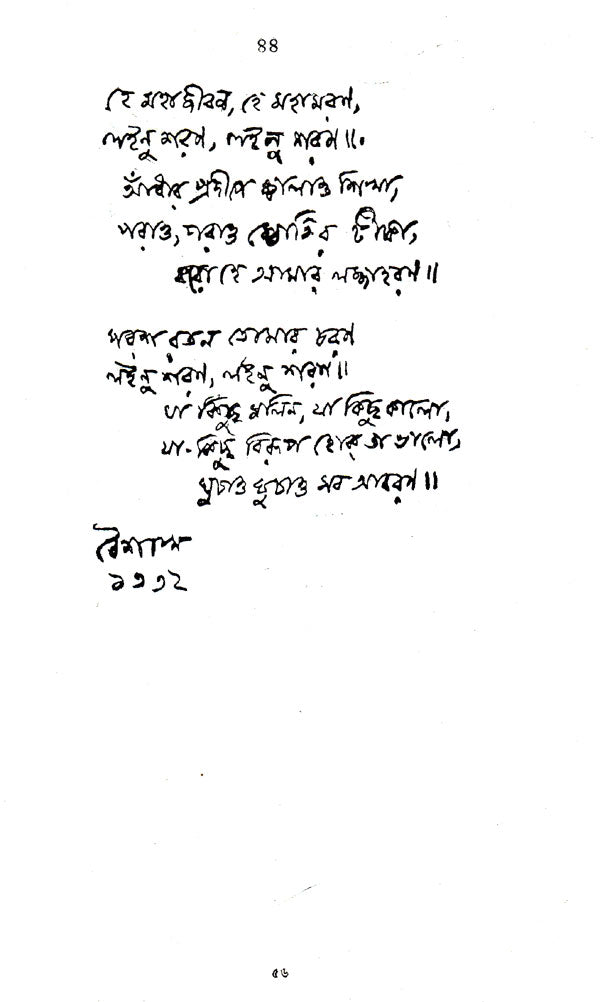 ৪৪
হে মহাজীবন, হে মহামরণ,
লইনু শরণ, লইনু শরণ॥
আঁধার প্রদীপে জ্বালাও শিখা,
পরাও, পরাও জ্যোতির টীকা,
করো হে আমার লজ্জাহরণ॥
পরশ রতন তোমার চরণ
লইনু শরণ, লইনু শরণ॥
যা কিছু মলিন, যা কিছু কালো,
যা-কিছু বিরূপ হোক তা ভালো,
ঘুচাও ঘুচাও সব আবরণ॥
বৈশাখ
১৩৩২
৫৬